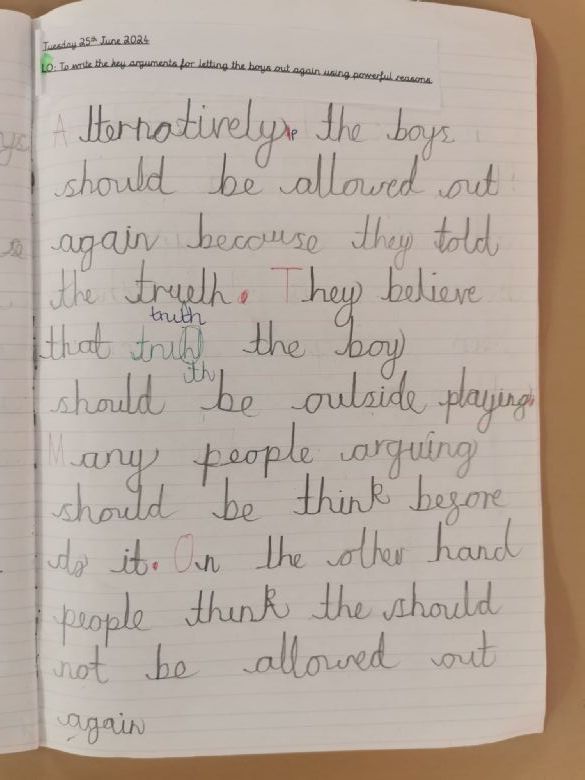 Tuesday 25th June 2024
LO: To write the key arguments for letting the boys out again using powerful reasons
Alternatively, the boys
should be allowed out
again because they told
the trueth. They believe
truth
that truh the boy
th
should be outside playing.
Many people arguing
should be think begore
do it. On the other hand
people think the should
not be allowed out
again